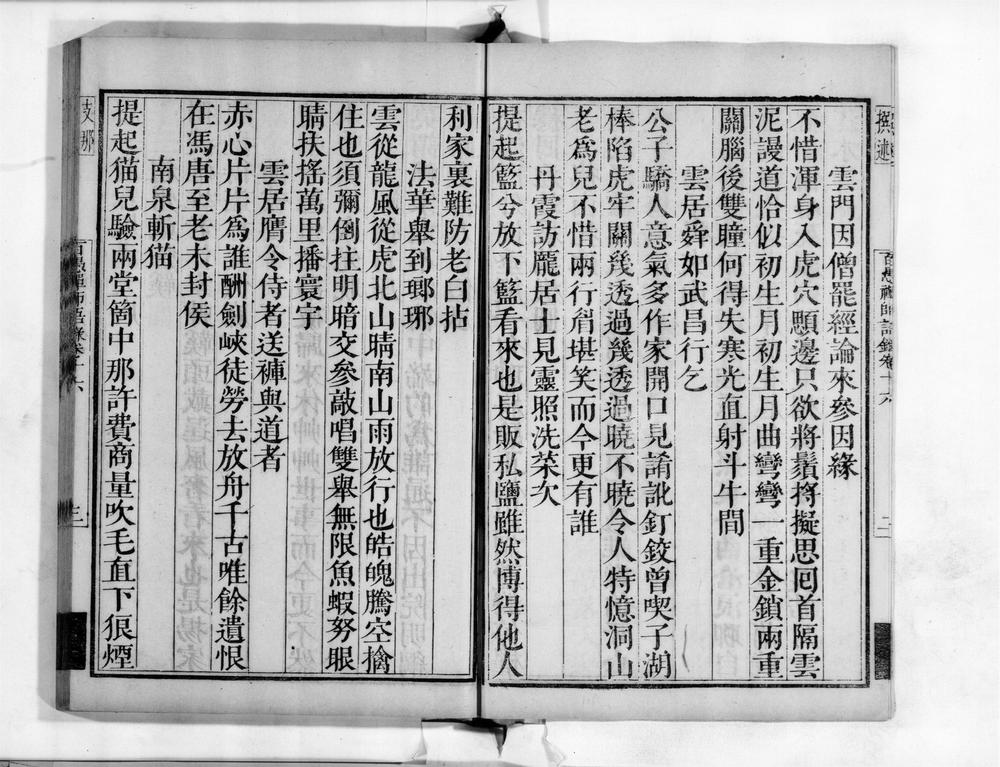 雲門因僧罷經論來參因緣
不惜渾身入虎穴顋邊只欲將鬚捋擬思囘首隔雲
泥謾道恰似初生月初生月曲彎彎一重金鎖兩重
關腦後雙瞳何得失寒光直射斗牛間
雲居舜如武昌行乞
公子驕人意氣多作家開口見誵訛釘鉸曾喫子湖
棒陷虎牢關幾透過幾透過曉不曉令人特憶洞山
老爲兒不惜兩行眉堪笑而今更有誰
丹霞訪龐居士見靈照洗菜次
提起籃兮放下籃看來也是販私鹽雖然博得他人
利家裏難防老白拈
法華舉到瑯琊
雲從龍風從虎北山晴南山雨放行也皓魄騰空擒
住也須彌倒拄明暗交參敲唱雙舉無限魚蝦努眼
睛扶搖萬里播寰宇
雲居膺令侍者送褲與道者
赤心片片爲誰酬劍峽徒勞去放舟千古唯餘遺恨
在馮唐至老未封侯
南泉斬猫
提起猫兒驗兩堂箇中那許費商量吹毛直下狼煙
撰述
百愚禪師語錄卷十六
二
支那
百愚禪師語錄卷十六
三